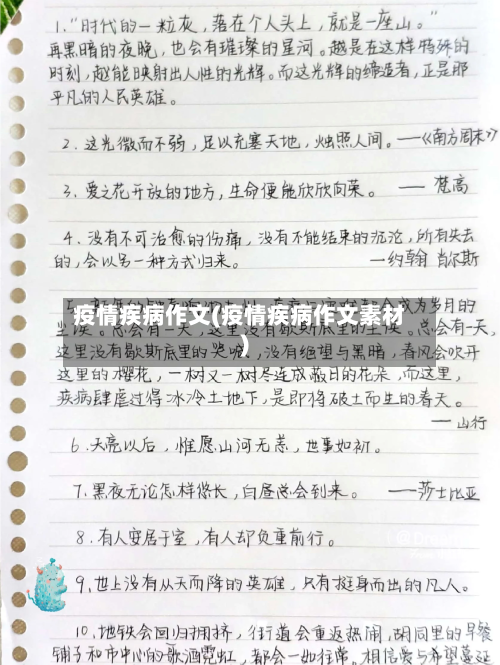 1."时代的一粒灰，落在个人头上，就是一座山。"
再黑暗的夜晚，也会有璀璨的星河。越是在这样特殊的
时刻，越能映射出人性的光辉。而这光辉的缔造者，正是那
平凡的人民英雄。
2.这光微而不弱，足以充塞天地，烛照人间。——《南方周末》
3.爱之花开放的地方，生命便能欣欣向荣。——梵高
4.没有不可治愈的伤痛，没有不能结束的沉沦，所有失去
的，会以另一种方式归来。——约翰 肖尔斯
会成为岁月的
疫情疾病作文(疫情疾病作文素材
)
尘埃。总会有一天，这里没有歇斯底里的 总会有一天，
这里没有歇斯底里的哭喊，没有绝望与黑暗，春风会吹开
这里的樱花，一树又一树尽连成蔽日的花朵，而这里，
疾病肆虐过得冰冷土地下，是即将破土而生的春天。
——山行
6.天亮以后，惟愿山河无恙，世事如初。
7.黑夜无论怎样悠长，白昼总会到来。——莎士比亚
8.有人安居于室，有人却负重前行。
9.世上没有从天而降的英雄，只有挺身而出的凡人。
10.地铁会回归拥挤，街道会重返热闹，胡同里的早餐
铺子和市中心的歌酒霓虹，都会一如往常。相信爱与希望蔓延